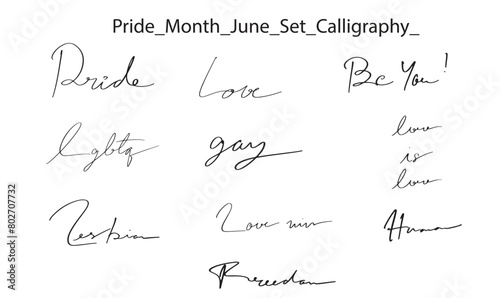 Pride_Month_June_Set_Calligraphy_
Pride
Love
Be You!
Lgbtq
gay
love
is
love
Lesbian
Love
Human
Freedom
Adobe Stock | #802707732